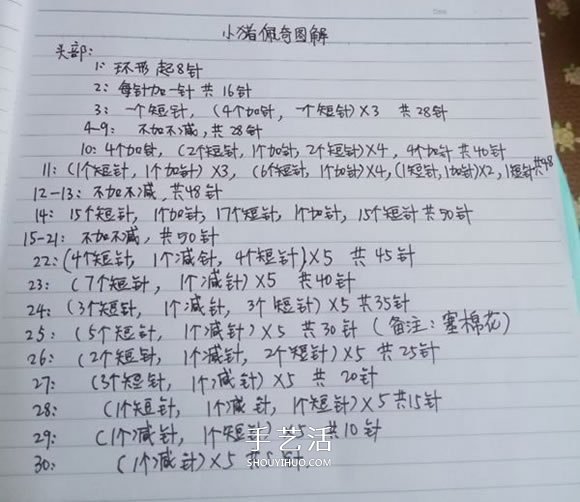 小猪佩奇图解
头部:
1: 环形起8针
2: 每针加一针 共16针
3: 一个短针, (4个加针, 一个短针)×3 共28针
4-9: 不加不减, 共28针
10: 4个加针, (2个短针, 1个加针, 2个短针)×4, 4个加针 共40针
11: (1个短针, 1个加针)×3, (6个短针, 1个加针)×4, (1短针, 1加针)×2, 1短针 共48
12-13: 不加不减, 共48针
14: 15个短针, 1个加针, 17个短针, 1个加针, 15个短针 共50针
15-21: 不加不减, 共50针
22: (4个短针, 1个减针, 4个短针)×5 共45针
23: (7个短针, 1个减针)×5 共40针
24: (3个短针, 1个减针, 3个短针)×5 共35针
25: (5个短针, 1个减针)×5 共30针 (备注: 塞棉花)
26: (2个短针, 1个减针, 2个短针)×5 共25针
27: (3个短针, 1个减针)×5 共20针
28: (1个短针, 1个减针, 1个短针)×5 共15针
29: (1个减针, 1个短针)×5 共10针
30: (1个减针)×5 共5针
手艺活
SHOUYIHUO.COM